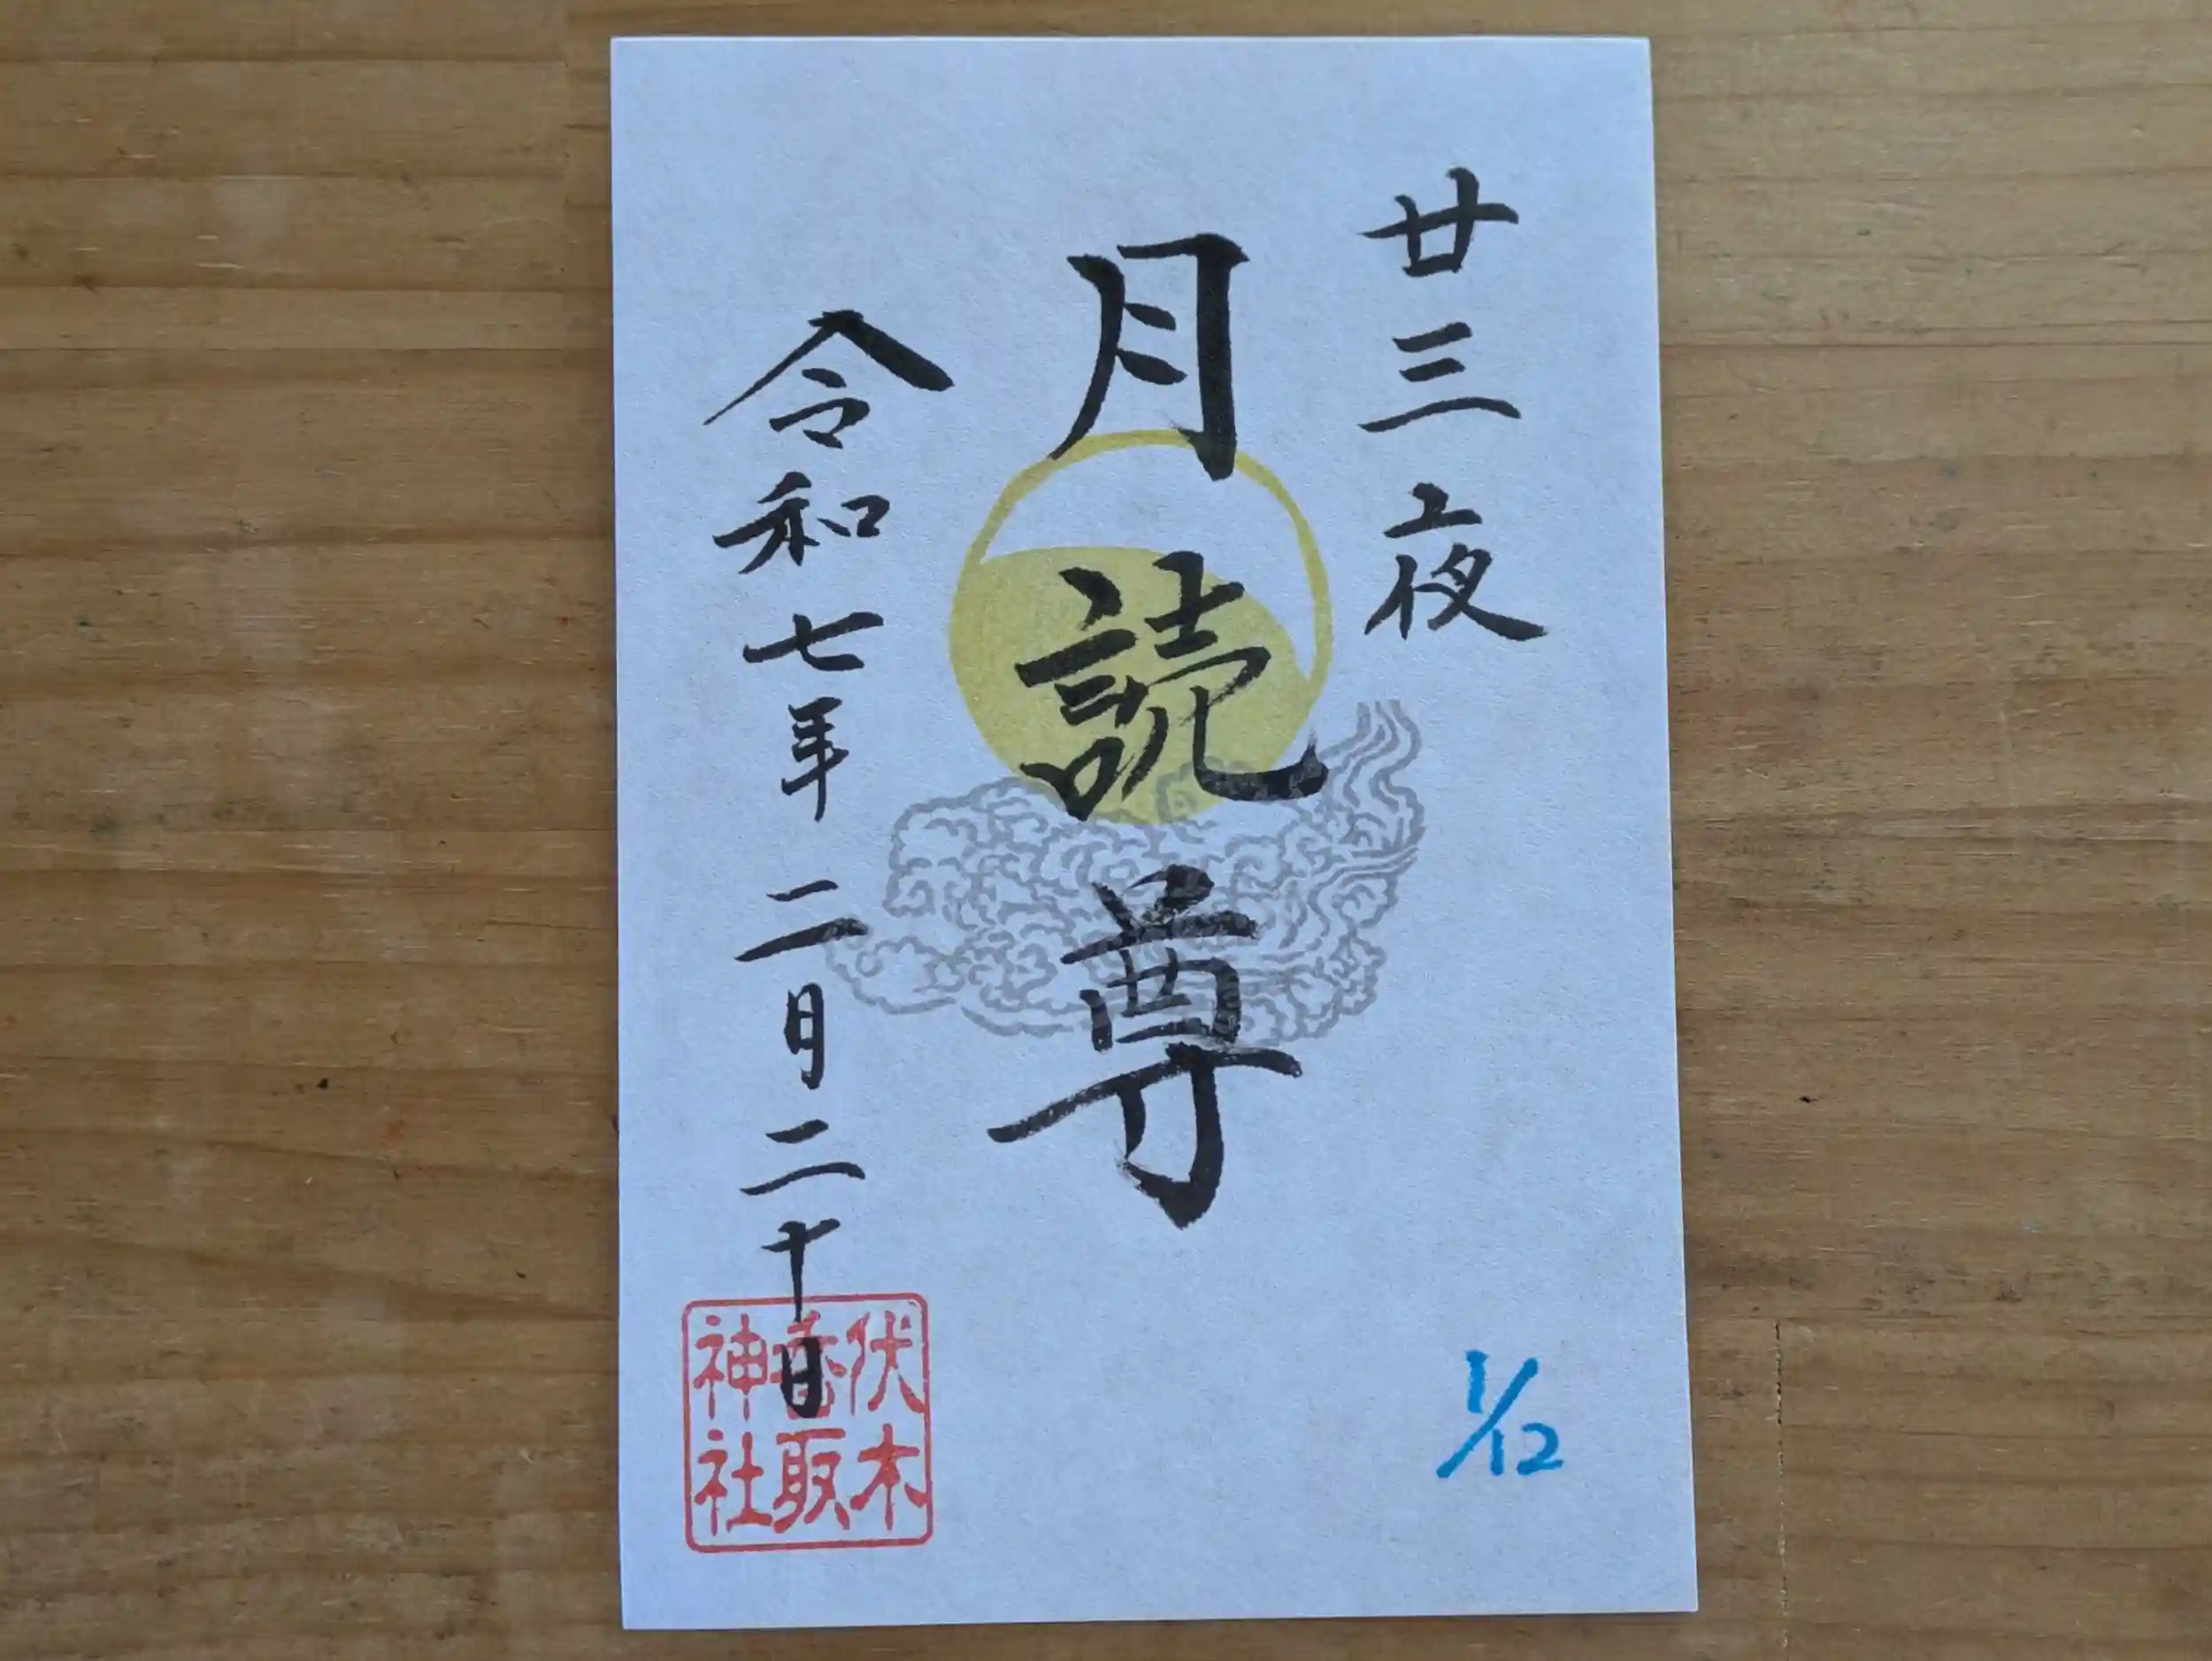 廿三夜
月読尊
令和七年二月二十日
伏木
香取
神社
1/12